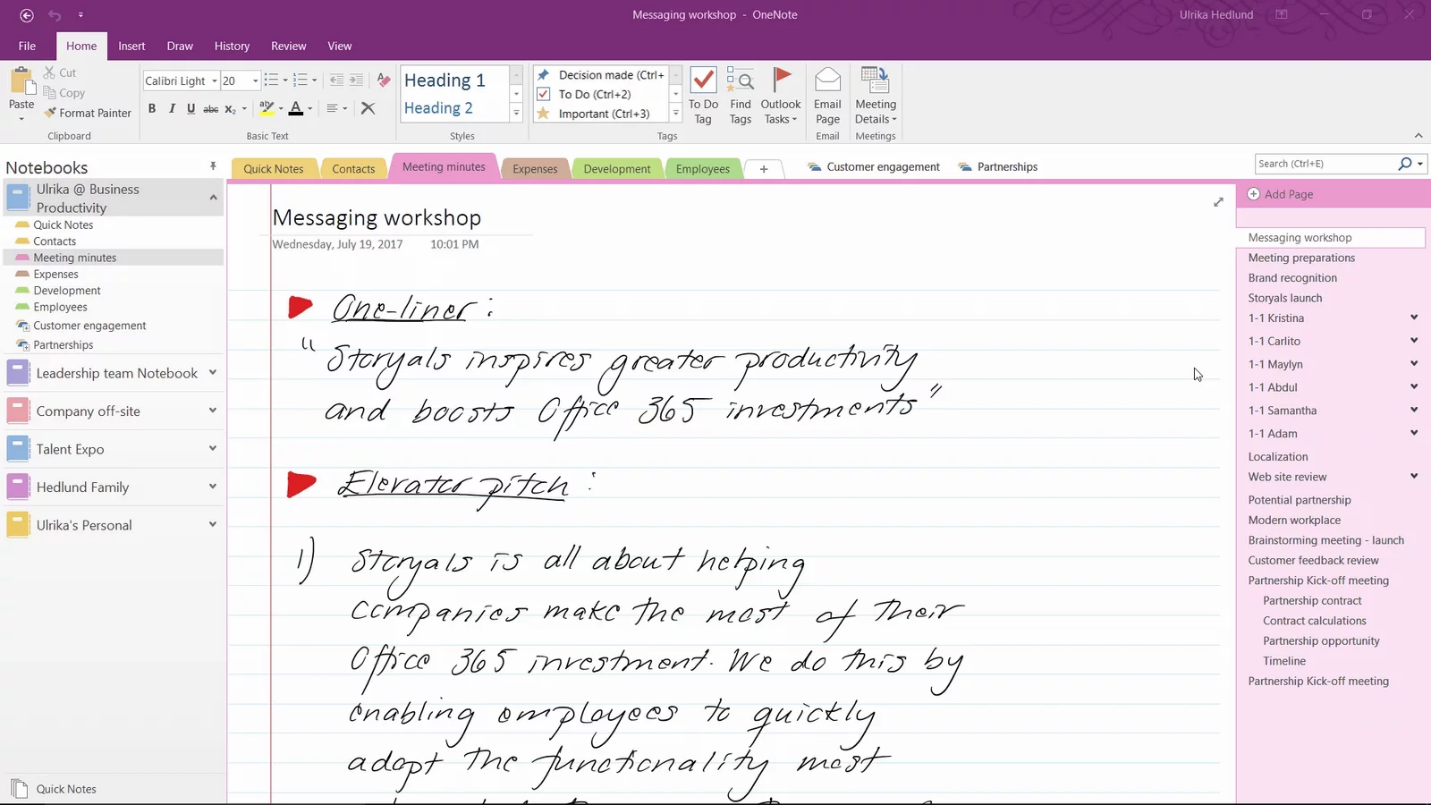 Messaging workshop - OneNote
Ulrika Hedlund
File
Home
Insert
Draw
History
Review
View
Paste
Cut
Copy
Format Painter
Clipboard
Calibri Light
20
B I U abc X₂ A
Basic Text
Heading 1
Heading 2
Styles
Decision made (Ctrl+
To Do (Ctrl+2)
Important (Ctrl+3)
To Do
Tag
Find
Tags
Outlook
Tasks
Tags
Email
Page
Email
Meeting
Details
Meetings
Notebooks
Ulrika @ Business
Productivity
Quick Notes
Contacts
Meeting minutes
Expenses
Development
Employees
Customer engagement
Partnerships
Leadership team Notebook
Company off-site
Talent Expo
Hedlund Family
Ulrika's Personal
Quick Notes
Quick Notes
Contacts
Meeting minutes
Expenses
Development
Employees
+
Customer engagement
Partnerships
Search (Ctrl+E)
Messaging workshop
Wednesday, July 19, 2017 10:01 PM
One-liner :
"Storyals inspires greater productivity
and boosts Office 365 investments"
Elevator pitch :
1) Storyals is all about helping
companies make the most of their
Office 365 investment. We do this by
enabling employees to quickly
adopt the functionality most
Add Page
Messaging workshop
Meeting preparations
Brand recognition
Storyals launch
1-1 Kristina
1-1 Carlito
1-1 Maylyn
1-1 Abdul
1-1 Samantha
1-1 Adam
Localization
Web site review
Potential partnership
Modern workplace
Brainstorming meeting - launch
Customer feedback review
Partnership Kick-off meeting
Partnership contract
Contract calculations
Partnership opportunity
Timeline
Partnership Kick-off meeting